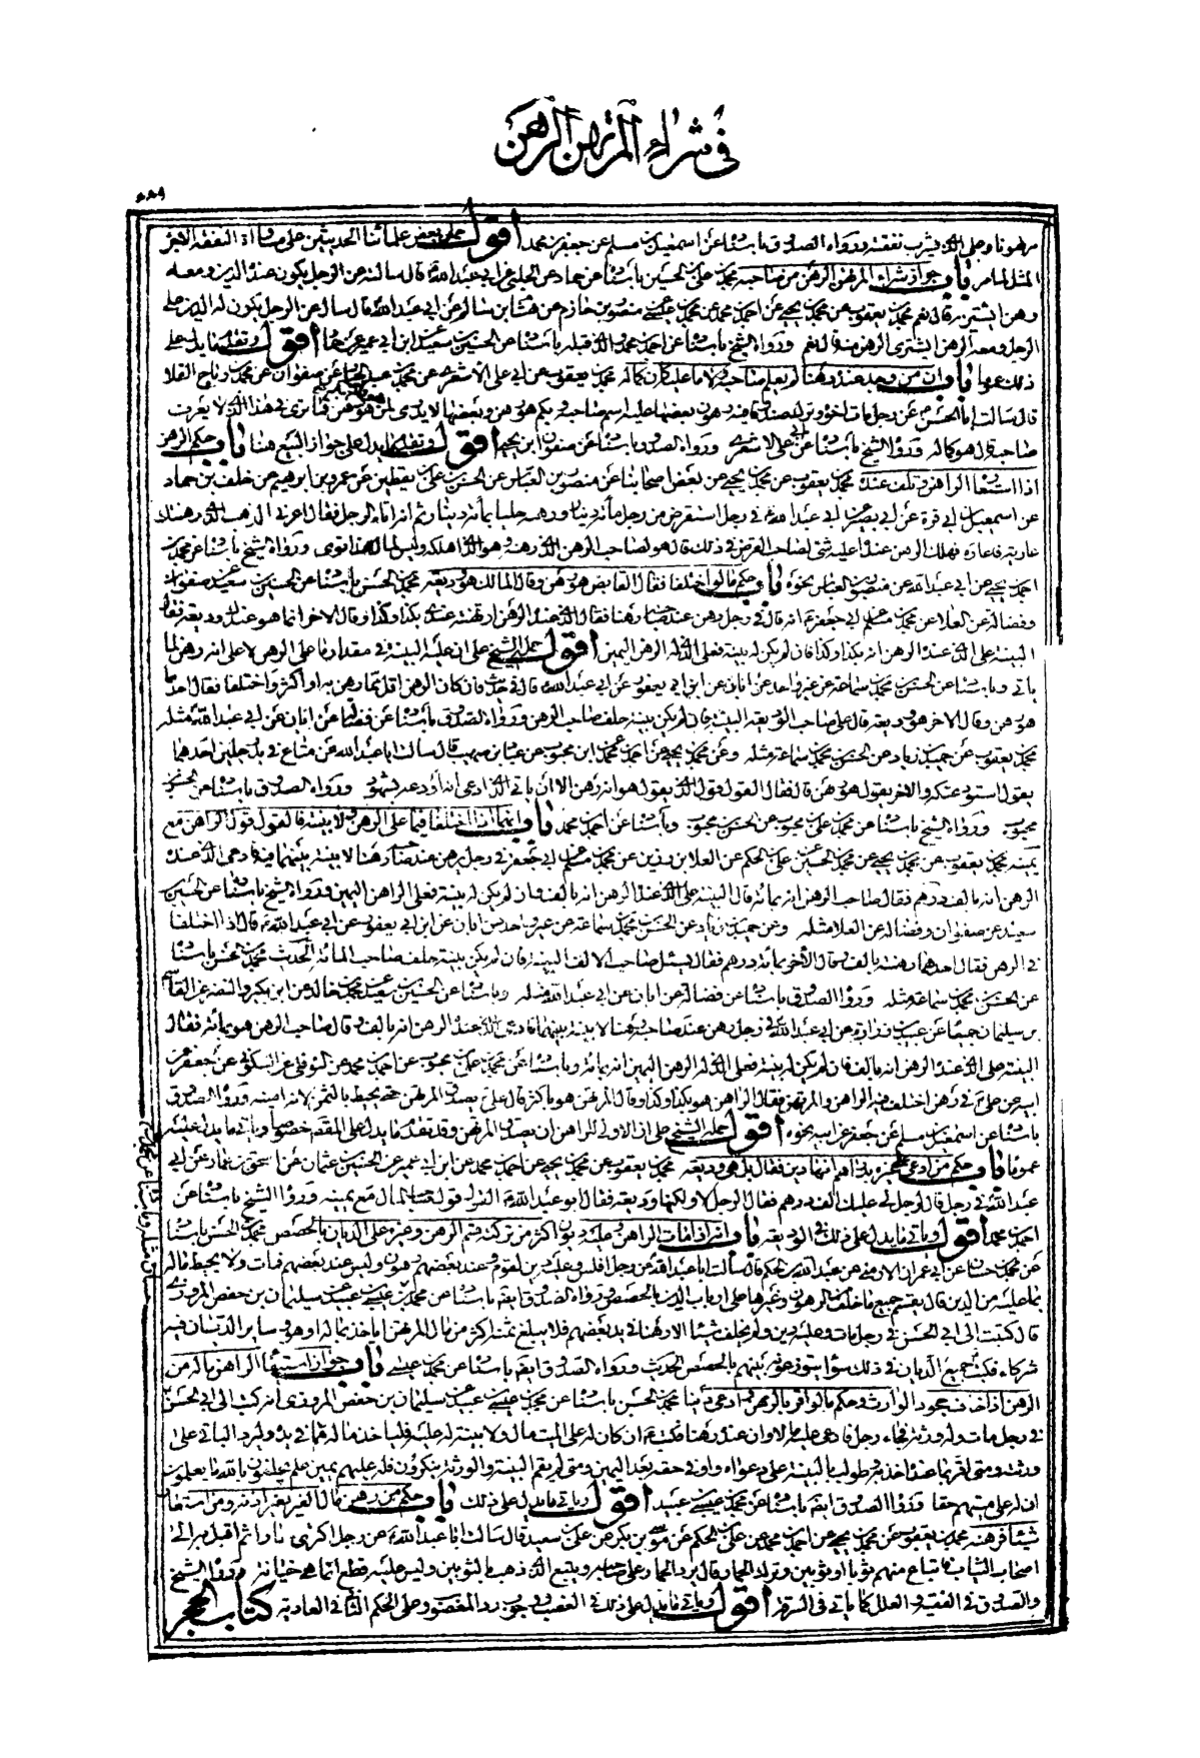 في شراء المرتهن الرهن
مرهونا وعلى الذي يشرب نفقته ورواه الصدوق باسناده عن اسمعيل بن مسلم عن جعفر بن محمد اقول حمله بعض علمائنا المحدثين على مساواة النفقة لاجر
المثل لما مر باب جواز شراء المرتهن الرهن من صاحبه محمد بن علي بن الحسين باسناده عن حماد عن الحلبي عن ابي عبد الله قال سالته عن الرجل يكون عنده الدين ومعه
رهن ايشتريه قال نعم محمد بن يعقوب عن محمد بن يحيى عن احمد بن محمد بن عيسى عن منصور بن حازم عن هشام بن سالم عن ابي عبد الله قال سال عن الرجل يكون له الدين على
الرجل ومعه الرهن ايشتري الرهن منه قال نعم ورواه الشيخ باسناده عن احمد بن محمد والذي قبله باسناده عن الحسين بن سعيد عن ابن ابي عمير عن حماد اقول وتقدم ما يدل على
ذلك عموما باب ان من وجد عنده رهنا لم يعلم صاحبه ولا ما عليه كان كماله محمد بن يعقوب عن ابي علي الاشعري عن محمد بن عبد الجبار عن صفوان عن محمد بن رباح القلا
قال سالت ابا الحسن عن رجل مات اخوه وترك صندوقا فيه رهون بعضها عليه اسم صاحبه وبكم هو رهن وبعضها لا يدرى لمن هو وبكم هو رهن فما ترى في هذا الذي لا يعرف
صاحبه قال هو كماله ورواه الشيخ باسناده عن ابي علي الاشعري ورواه الصدوق باسناده عن صفوان بن يحيى اقول وتقدم ما يدل على جواز البيع هنا باب حكم الرهن
اذا استعاره الراهن وتلف عنده محمد بن يعقوب عن محمد بن يحيى عن بعض اصحابنا عن منصور بن العباس عن الحسن بن علي بن يقطين عن عمرو بن ابرهيم عن خلف بن حماد
عن اسمعيل بن ابي قرة عن ابي بصير عن ابي عبد الله في رجل استقرض من رجل مأة دينار ورهنه حليا بمأة دينار ثم انه اتاه الرجل فقال اعرني الذهب الذي رهنتك
عارية فاعاره فهلك الرهن عنده اعليه شئ لصاحب القرض في ذلك قال هو لصاحب الرهن الذي رهنه وهو الذي اهلكه وليس لمال هذا توى ورواه الشيخ باسناده عن محمد بن
احمد بن يحيى عن ابي عبد الله عن منصور بن العباس نحوه باب حكم ما لو اختلفا فقال القابض هو رهن وقال المالك هو وديعة محمد بن الحسن باسناده عن الحسين بن سعيد عن صفوان
وفضالة عن العلا عن محمد بن مسلم عن ابي جعفر ع انه قال في رجل رهن عند صاحبه رهنا فقال الذي عنده الرهن ارتهنته عندي بكذا وكذا وقال الاخر انما هو عندك وديعة فقال
البينة على الذي عنده الرهن انه بكذا وكذا فان لم يكن له بينة فعلى الذي له الرهن اليمين اقول حمله الشيخ على ان عليه البينة في مقدار ما على الرهن لا على انه رهن لما
ياتي وباسناده عن الحسن بن محمد بن سماعة عن غير واحد عن ابان عن ابن ابي يعفور عن ابي عبد الله قال في حديث فان كان الرهن اقل مما رهن به او اكثر واختلفا فقال احدهما
هو رهن وقال الاخر هو وديعة قال على صاحب الوديعة البينة فان لم يكن بينة حلف صاحب الرهن ورواه الصدوق باسناده عن فضالة عن ابان عن ابي عبد الله مثله
محمد بن يعقوب عن حميد بن زياد عن الحسن بن محمد بن سماعة مثله وعن محمد بن يحيى عن احمد بن محمد عن ابن محبوب عن عباد بن صهيب قال سالت ابا عبد الله عن متاع في يد رجلين احدهما
يقول استودعتكه والاخر يقول هو رهن قال فقال القول قول الذي يقول هو انه رهن الا ان ياتي الذي ادعى انه اودعه بشهود ورواه الصدوق باسناده عن الحسن بن
محبوب ورواه الشيخ باسناده عن محمد بن علي بن محبوب عن الحسن بن محبوب وباسناده عن احمد بن محمد باب انهما اذا اختلفا فيما على الرهن ولا بينة فالقول قول الراهن مع
يمينه محمد بن يعقوب عن محمد بن يحيى عن محمد بن الحسين عن علي بن الحكم عن العلا بن رزين عن محمد بن مسلم عن ابي جعفر في رجل يرهن عند صاحبه رهنا لا بينة بينهما فيه ادعى الذي عنده
الرهن انه بالف درهم فقال صاحب الرهن انه بمائة قال البينة على الذي عنده الرهن انه بالف وان لم يكن له بينة فعلى الراهن اليمين ورواه الشيخ باسناده عن الحسين بن
سعيد عن صفوان وفضالة عن العلا مثله وعن حميد بن زياد عن الحسن بن محمد بن سماعة عن غير واحد عن ابان عن ابن ابي يعفور عن ابي عبد الله ع قال اذا اختلفا
في الرهن فقال احدهما رهنته بالف وقال الآخر بمائة درهم فقال يسئل صاحب الالف البينة فان لم يكن بينة حلف صاحب المائة الحديث محمد بن الحسن باسناده
عن الحسن بن محمد بن سماعة مثله ورواه الصدوق باسناده عن فضالة عن ابان عن ابي عبد الله مثله وباسناده عن الحسين بن سعيد عن محمد بن خالد عن ابن بكير والنضر عن القاسم
بن سليمان جميعا عن عبيد بن زرارة عن ابي عبد الله في رجل رهن عند صاحبه رهنا لا بينة بينهما فادعى الذي عنده الرهن انه بالف وقال صاحب الرهن هو بمائة فقال
البينة على الذي عنده الرهن انه بالف فان لم يكن له بينة فعلى الذي له الرهن اليمين انه بمائة وباسناده عن محمد بن علي بن محبوب عن احمد بن محمد عن النوفلي عن السكوني عن جعفر عن
ابيه عن علي ع في رهن اختلف فيه الراهن والمرتهن فقال الراهن هو بكذا وكذا وقال المرتهن هو باكثر قال علي يصدق المرتهن حتى يحيط بالثمن لانه امينه ورواه الصدوق
باسناده عن اسمعيل بن مسلم عن جعفر عن ابيه نحوه اقول حمله الشيخ على ان الاولى للراهن ان يصدق المرتهن وقد تقدم ما يدل على المقصود خصوصا وياتي ما يدل عليه
عموما باب حكم من ادعى على غيره بدراهم انها دين فقال بل هي وديعة محمد بن يعقوب عن محمد بن يحيى عن احمد بن محمد عن ابن ابي عمير عن الحسين بن عثمان عن اسحق بن عمار عن ابي
عبد الله في رجل قال لرجل لي عليك الف درهم فقال الرجل لا ولكنها وديعة فقال ابو عبد الله ع القول قول صاحب المال مع يمينه ورواه الشيخ باسناده عن
احمد بن محمد اقول وياتي ما يدل على ذلك في الوديعة باب انه اذا مات الراهن وعليه ديون اكثر من تركته قسم الرهن وغيره على الديان بالحصص محمد بن الحسن باسناده
عن محمد بن حسان عن ابي عمران الارمني عن عبد الله بن الحكم قال سألت ابا عبد الله عن رجل افلس وعليه دين لقوم وعند بعضهم رهون وليس عند بعضهم فمات ولا يحيط ماله
بما عليه من الدين قال يقسم جميع ما خلف من الرهون وغيرها على ارباب الدين بالحصص ورواه الصدوق ايضا باسناده عن محمد بن عيسى بن عبيد عن سليمان بن حفص المروزي
قال كتبت الى ابي الحسن في رجل مات وعليه دين ولم يخلف شيئا الا رهنا في يد بعضهم فلا يبلغ ثمنه اكثر من مال المرتهن اياخذه بماله او هو وساير الديان فيه
شركاء فكتب جميع الديان في ذلك سواء يتوزعونه بينهم بالحصص الحديث ورواه الصدوق ايضا باسناده عن محمد بن عيسى باب جواز استيفاء الراهن ماله من
الرهن اذا خاف جحود الوارث وحكم ما لو اقر بالرهن وادعى دينا محمد بن الحسن باسناده عن محمد بن عيسى بن عبيد عن سليمان بن حفص المروزي انه كتب الى ابي الحسن
في رجل مات وله ورثة فجاء رجل فادعى عليه مالا وان عنده رهنا فكتب ع ان كان له على الميت مال ولا بينة له عليه فلياخذ ماله مما في يده وليرد الباقي على
ورثته ومتى اقر بما عنده اخذ به وطولب بالبينة على دعواه واوفي حقه بعد اليمين ومتى لم يقم البينة والورثة ينكرون فله عليهم يمين علم يحلفون بالله ما يعلمون
ان له على ميتهم حقا ورواه الصدوق ايضا باسناده عن محمد بن عيسى بن عبيد اقول وياتي ما يدل على ذلك باب حكم من رهن مال الغير بغير اذنه ومن استعار
شيئا فرهنه محمد بن يعقوب عن محمد بن يحيى عن احمد بن محمد عن علي بن الحكم عن موسى بن بكر عن علي بن سعيد قال سالت ابا عبد الله ع عن رجل اكترى حمارا ثم اقبل به الى
اصحاب الثياب فابتاع منهم ثوبا او ثوبين وترك الحمار قال يرد الحمار على صاحبه ويتبع الذي ذهب بالثوبين وليس عليه قطع انما هي خيانة ورواه الشيخ
والصدوق في الفقيه والعلل كما ياتي في السرقة اقول وياتي ما يدل على ذلك في الغصب وفي وجوب رد المغصوب وعلى الحكم الثاني في العارية كتاب الحجر